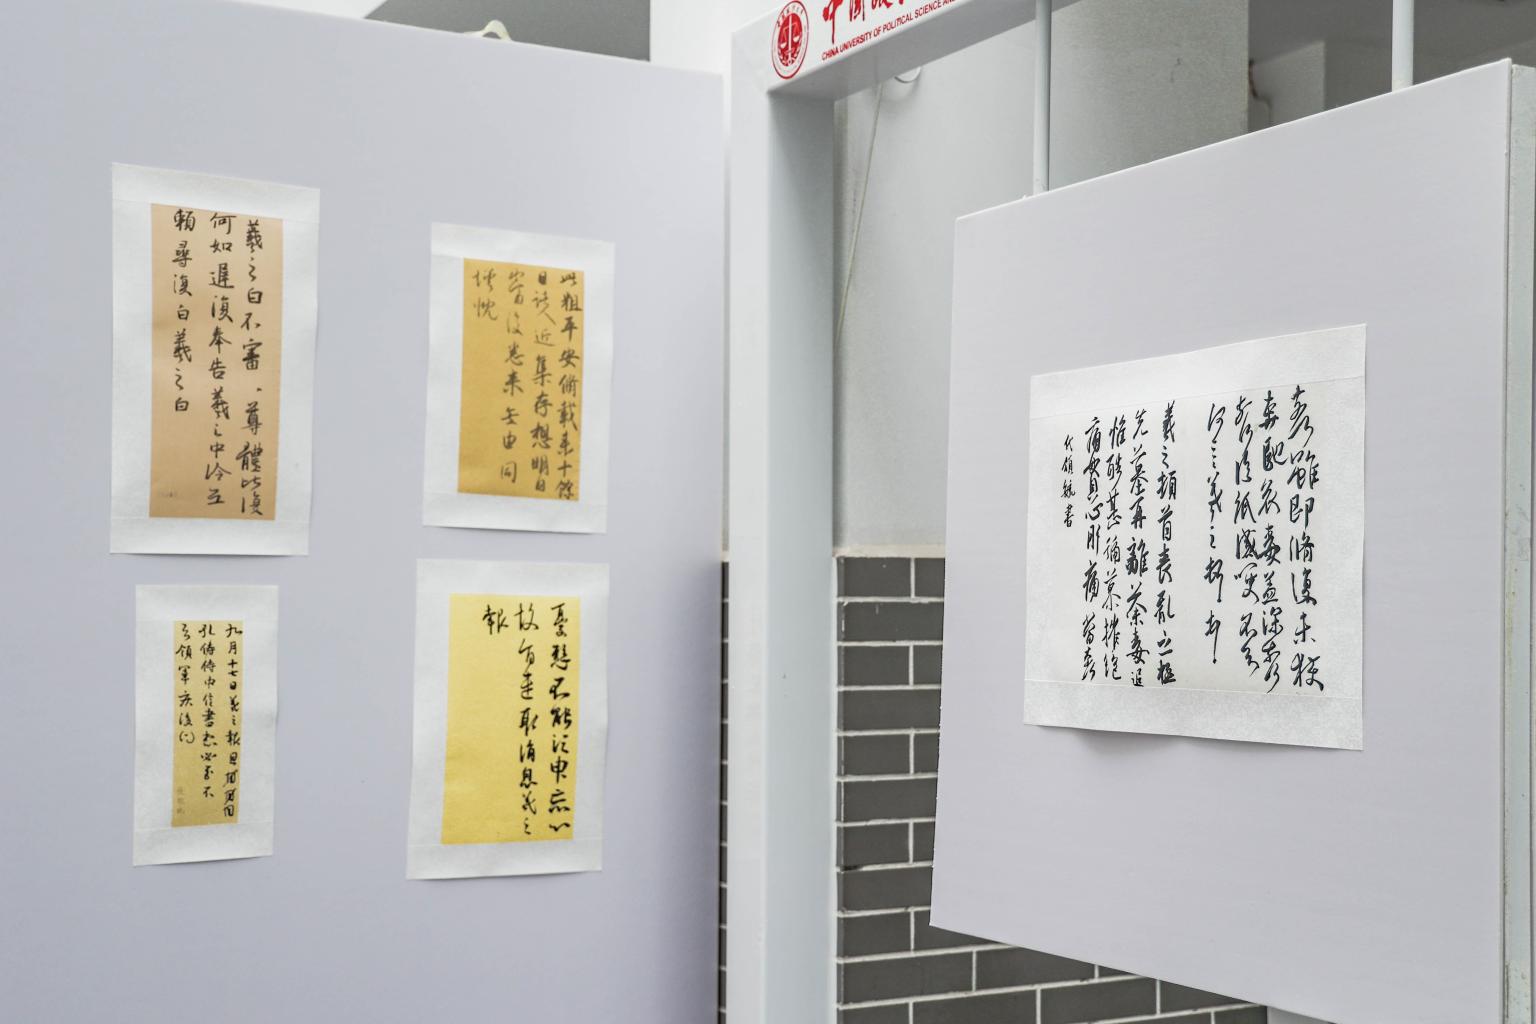 CHINA UNIVERSITY OF POLITICAL SCIENCE AND
羲之白不審、尊體比復
何如遲復奉告羲之中冷無
賴尋復白羲之白
此粗平安脩載來十餘
日諸人近集存想明日
當復悉來無由同
增慨
九月十七日羲之報且因
孔侍侍中信書想必至不
知領軍疾後問
憂懸不能須臾忘心
故旨遣取消息羲之
報
奈何雖即脩復未獲
奔馳哀毒益深奈
何臨紙感哽不知
何言羲之頓首頓首
羲之頓首喪亂之極
先墓再離荼毒追
惟酷甚號慕摧絕
痛貫心肝痛當奈